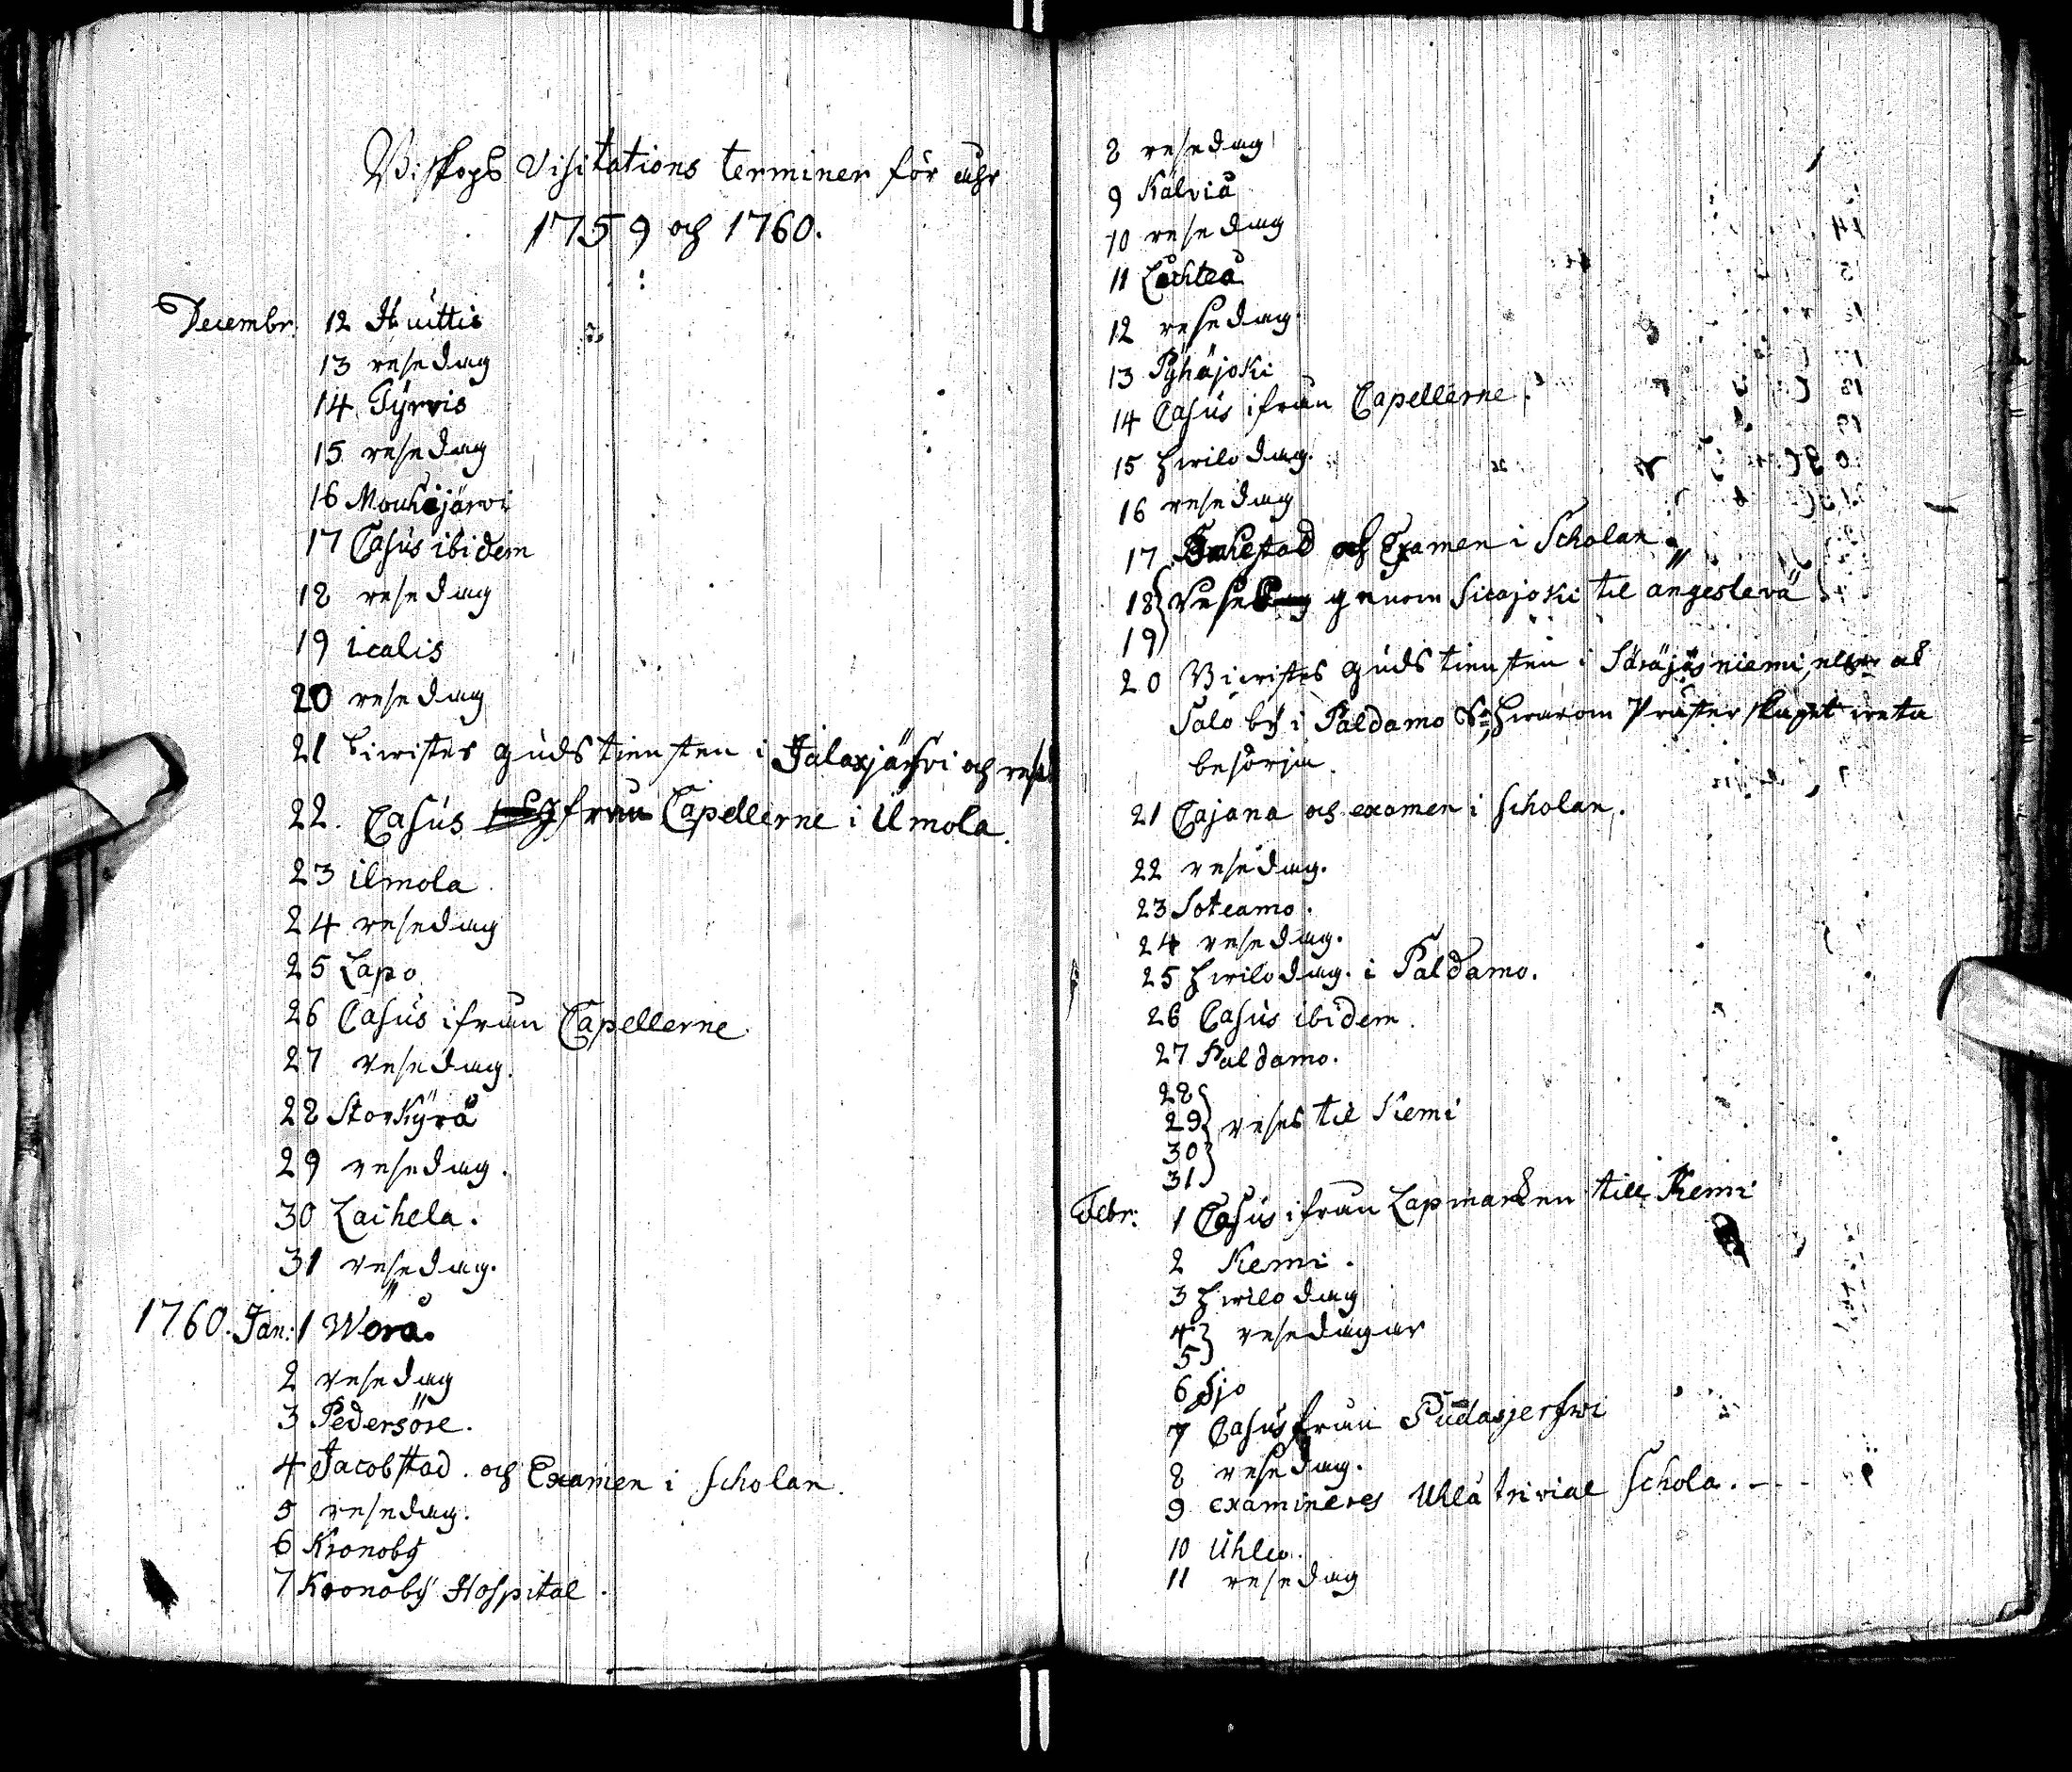 Biskops Visitations terminer för åhr
1759 och 1760.
Decembr. 12 Huittis
13 resedag
14 Tyrvis
15 resedag
16 Mouhijärvi
17 Casus ibidem
18 resedag
19 icalis
20 resedag
21 biwistes gudstiensten i Jalaxjärfvi och
22. Casus från Capellerne i ilmola.
23 ilmola
24 resedag
25 Lapo
26 Casus ifrån Capellerne
27 resedag.
28 Storkyrå
29 resedag.
30 Laihela.
31 resedag.
1760. Jan: 1 Wörå.
2 resedag
3 Pedersöre.
4 Jacobstad. och Examen i Scholan.
5 resedag.
6 Kronoby
7 Kronoby Hospital.
8 resedag
9 Kälviå
10 resedag
11 Lochteå
12 resedag.
13 Pyhäjoki
14 Casus ifrån Capellerne.
15 hwilodag.
16 resedag
17 Brahestad och Examen i Scholan.
18 resedag genom Sicajoki til ängeslevä
19
20 Biwistes gudstiensten i Säräjäsniemi,
Salo by i Paldamo Sn, hwarom Prästerskapet weta
besörja.
21 Cajana och examen i Scholan.
22 resedag.
23 Soteamo.
24 resedag.
25 hwilodag. i Paldamo.
26 Casus ibidem.
27 Paldamo.
28
29 reses til Kemi
30
31
Febr: 1 Casus ifrån Lapmarken till Kemi
2 Kemi.
3 hwilodag
4 resedagar
5
6 Ijo
7 Casus från Pudasjerfwi
8 resedag.
9 examineres Uhlå trivial Schola.
10 Uhleo.
11 resedag